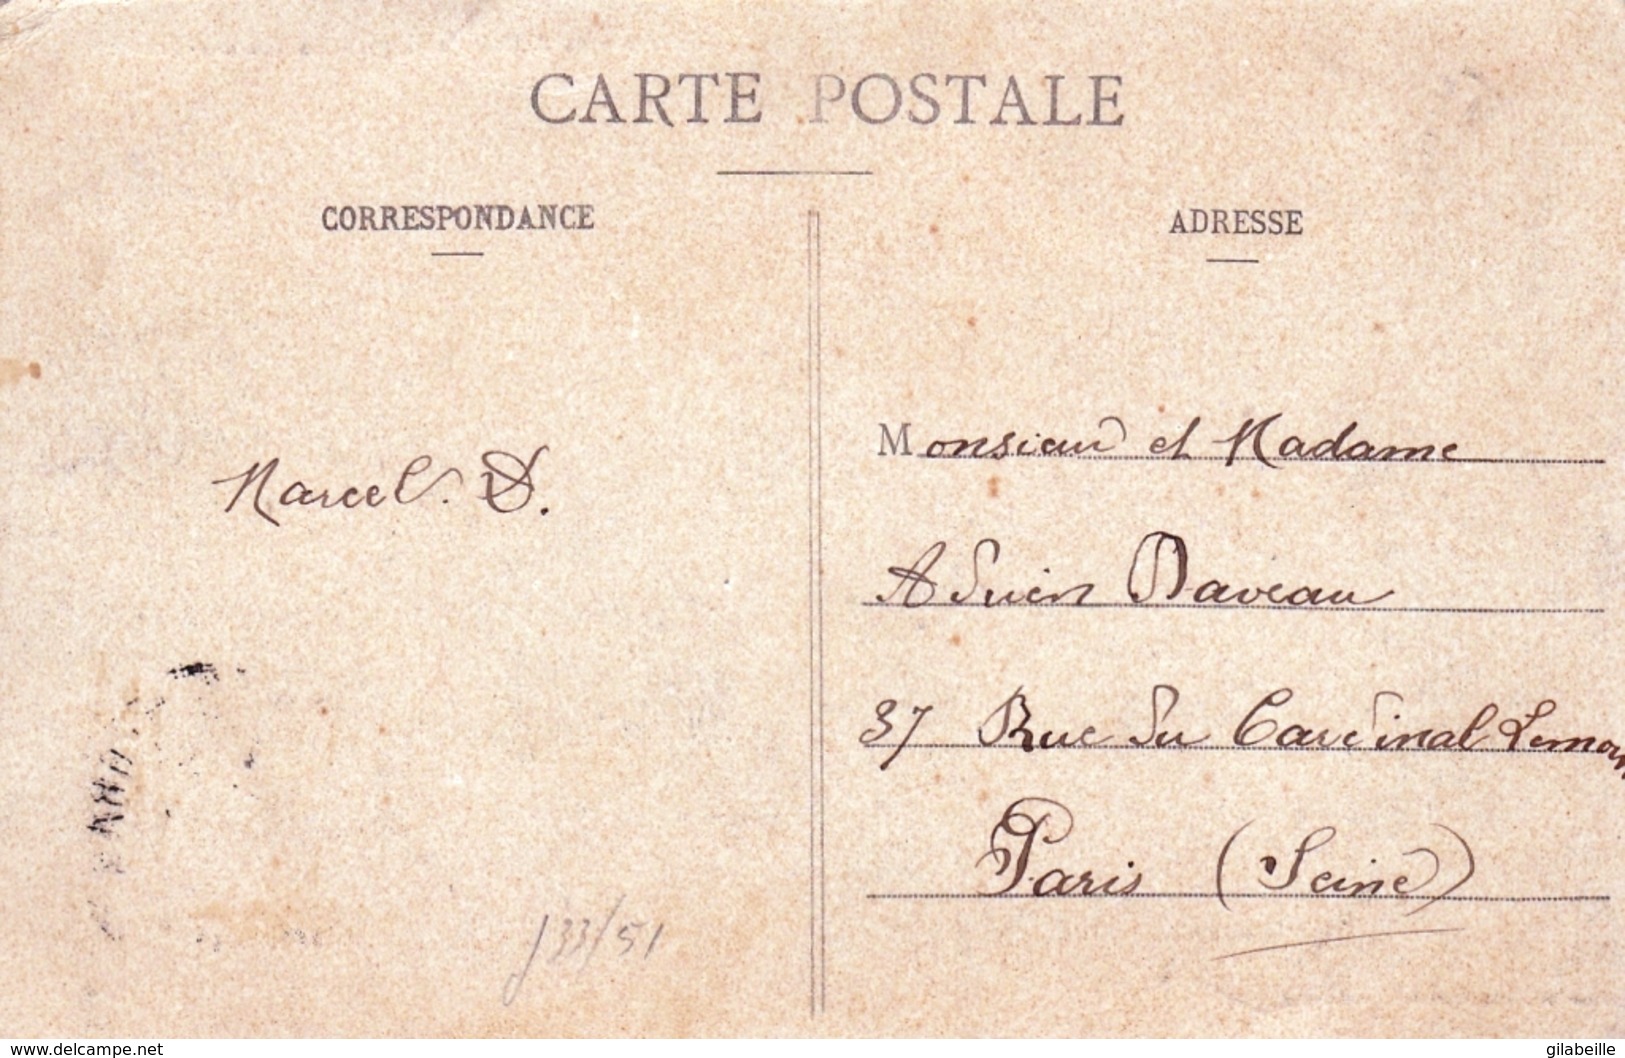 CARTE POSTALE
CORRESPONDANCE
ADRESSE
Marcel. D.
Monsieur et Madame
Adrien Daveau
37 Rue du Cardinal Lemoin
Paris (Seine)
J33/51
www.delcampe.net
gilabeille